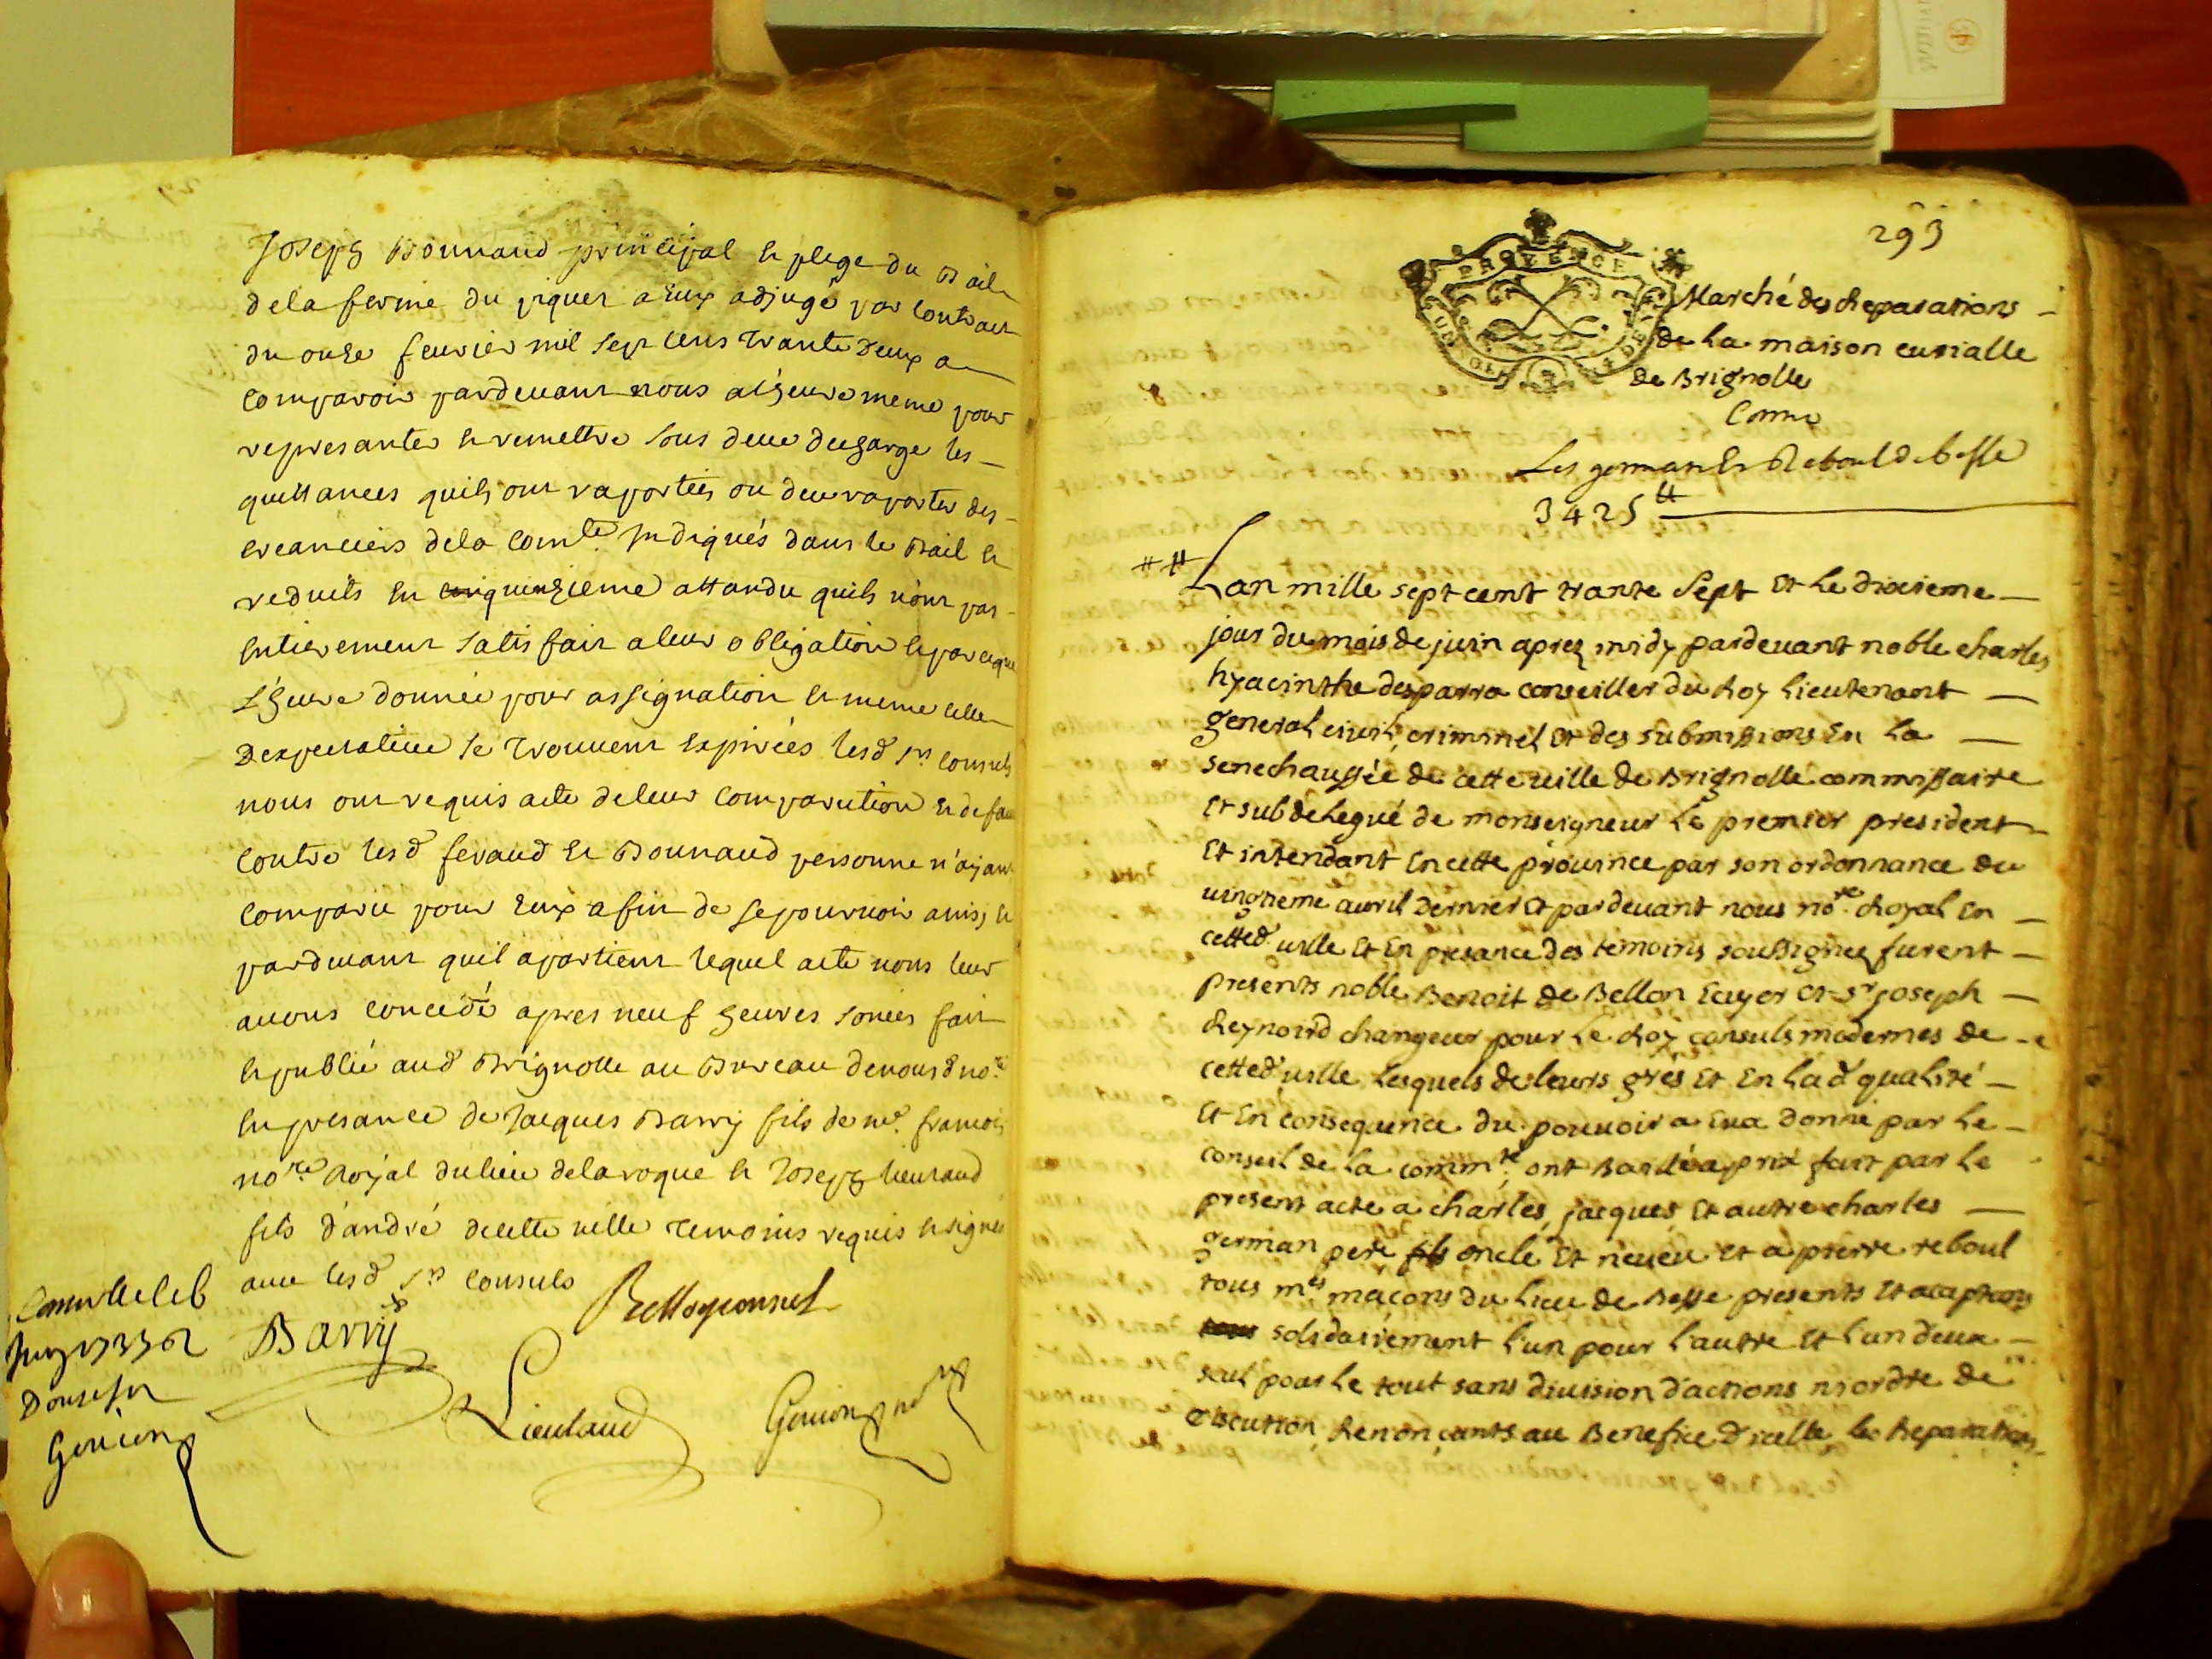 Joseph Bonnaud principal et plege du Bail
de la ferme du piquet a eux adjugé par contract
du onze feurier mil sept cens trante deux a
comparoir pardeuant nous a l'heure meme pour
represanter et remettre sous deue decharge les
quittances quils ont raportées ou deu raporter des
creanciers de la comté. indiqués dans le Bail et
reduits en quinzieme attandu quils n'ont pas
entierement satisfait a leur obligation et parceque
l'heure donnée pour assignation et meme celle
d'expectatiue se trouuent expirées lesd srs consuls
nous ont requis acte de leur comparution et defaut
contre lesd feraud et Bonnaud personne n'ayant
comparu pour eux afin de se pouruoir ainsy et
pardeuant quil apartient lequel acte nous leur
auons concedé apres neuf heures sonées fait
et publié aud Brignolle au Bureau de nousd nore.
en presance de Jacques Barry fils de me. francois
nore. Royal du lieu de laroque et Joseph lieutaud
fils d'andré de cette uille temoins requis et signés
auec lesd srs consuls
Barry
Lieutaud
Gouion nore
Gouion
293
PROVENCE
Marché des Reparations
de la maison curialle
de Brignolle
Contre
Les german et Reboul de besse
3425 ₶
Lan mille sept cent trante sept et le dixieme
jour du mois de juin apres midy pardeuant noble charles
hyacinthe desparra conseiller du Roy Lieutenant
general ciuil, criminel et des submissions En la
senechaussée de cette uille de Brignolle commissaire
et subdelegué de monseigneur le premier president
et intendant en cette prouince par son ordonnance du
uingtieme auril dernier et pardeuant nous nore. Royal en
cetted. uille et en presance des temoins soussignes furent
presents noble Benoit de Bellon Ecuyer et sr joseph
Reynoird changeur pour le Roy consuls modernes de
cetted. uille, lesquels de leurs grés et en lad qualité
et en consequence du pouuoir a eux donné par le
conseil de la commté. ont Baillé a prix fait par le
present acte a charles, jacques, et autre charles
german pere fils oncle et neueu et a pierre reboul
tous mes maçons du lieu de Besse presents et acceptans
solidairement l'un pour l'autre et l'un deux
seul pour le tout sans diuision d'actions ni ordre de
discution, Renonçants au Benefice d'icelle, les Reparations